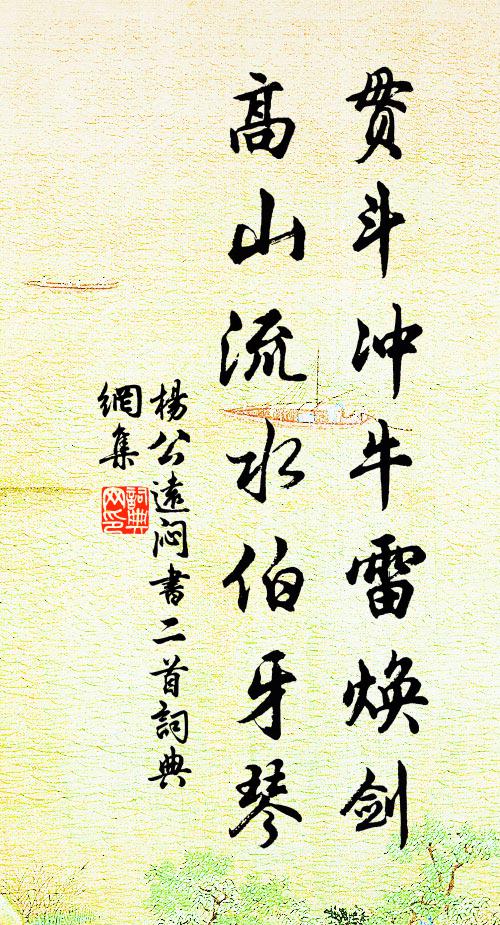 贯斗冲牛雷焕剑
高山流水伯牙琴
楊公遠闷書二首詞典
網集
詞典
网印